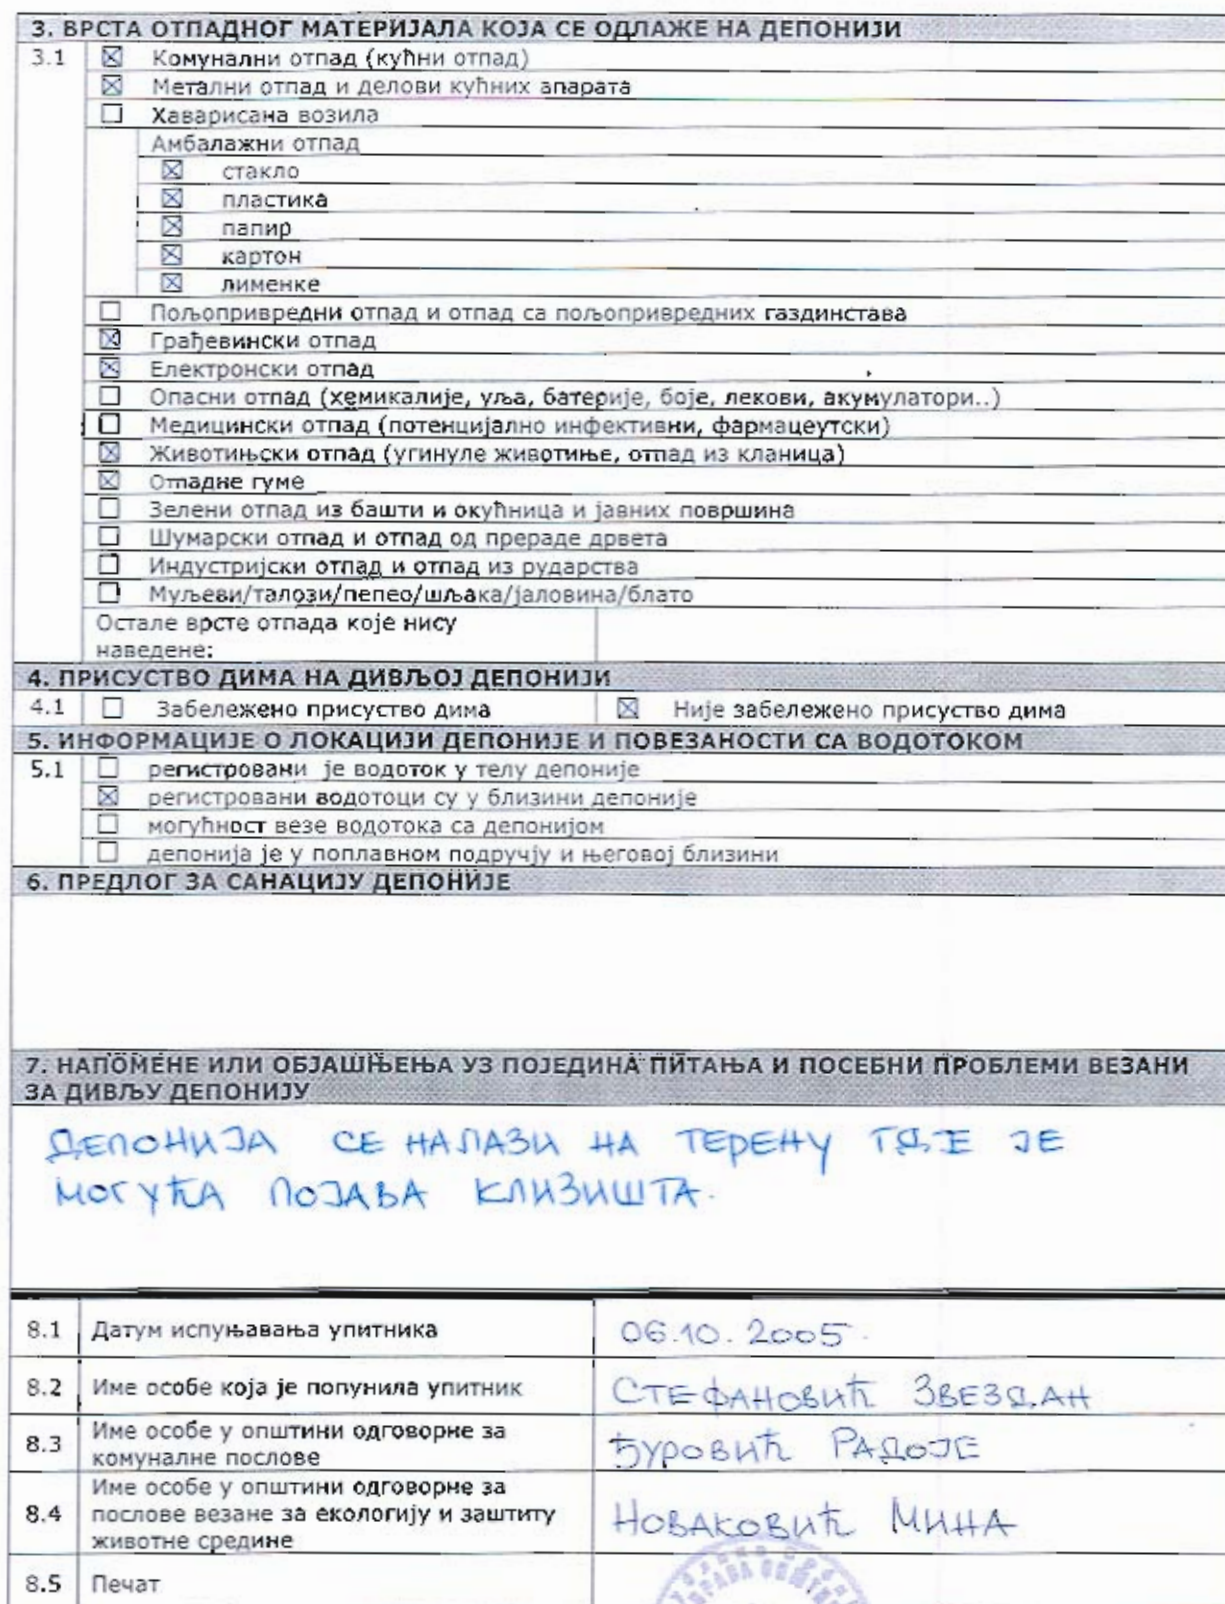 3. ВРСТА ОТПАДНОГ МАТЕРИЈАЛА КОЈА СЕ ОДЛАЖЕ НА ДЕПОНИЈИ
3.1 ☒ Комунални отпад (кућни отпад)
☒ Метални отпад и делови кућних апарата
☐ Хаварисана возила
Амбалажни отпад
☒ стакло
☒ пластика
☒ папир
☒ картон
☒ лименке
☐ Пољопривредни отпад и отпад са пољопривредних газдинстава
☒ Грађевински отпад
☒ Електронски отпад
☐ Опасни отпад (хемикалије, уља, батерије, боје, лекови, акумулатори..)
☐ Медицински отпад (потенцијално инфективни, фармацеутски)
☒ Животињски отпад (угинуле животиње, отпад из кланица)
☒ Отпадне гуме
☐ Зелени отпад из башти и окућница и јавних површина
☐ Шумарски отпад и отпад од прераде дрвета
☐ Индустријски отпад и отпад из рударства
☐ Муљеви/талози/пепео/шљака/јаловина/блато
Остале врсте отпада које нису
наведене:
4. ПРИСУСТВО ДИМА НА ДИВЉОЈ ДЕПОНИЈИ
4.1 ☐ Забележено присуство дима ☒ Није забележено присуство дима
5. ИНФОРМАЦИЈЕ О ЛОКАЦИЈИ ДЕПОНИЈЕ И ПОВЕЗАНОСТИ СА ВОДОТОКОМ
5.1 ☐ регистровани је водоток у телу депоније
☒ регистровани водотоци су у близини депоније
☐ могућност везе водотока са депонијом
☐ депонија је у поплавном подручју и његовој близини
6. ПРЕДЛОГ ЗА САНАЦИЈУ ДЕПОНИЈЕ
7. НАПОМЕНЕ ИЛИ ОБЈАШЊЕЊА УЗ ПОЈЕДИНА ПИТАЊА И ПОСЕБНИ ПРОБЛЕМИ ВЕЗАНИ
ЗА ДИВЉУ ДЕПОНИЈУ
ДЕПОНИЈА СЕ НАЛАЗИ НА ТЕРЕНУ ГДЕ ЈЕ
МОГУЋА ПОЈАВА КЛИЗИШТА.
8.1 Датум испуњавања упитника 06.10.2005.
8.2 Име особе која је попунила упитник СТЕФАНОВИЋ ЗВЕЗДАН
8.3 Име особе у општини одговорне за
комуналне послове ЂУРОВИЋ РАДОЈЕ
8.4 Име особе у општини одговорне за
послове везане за екологију и заштиту
животне средине НОВАКОВИЋ МИНА
8.5 Печат